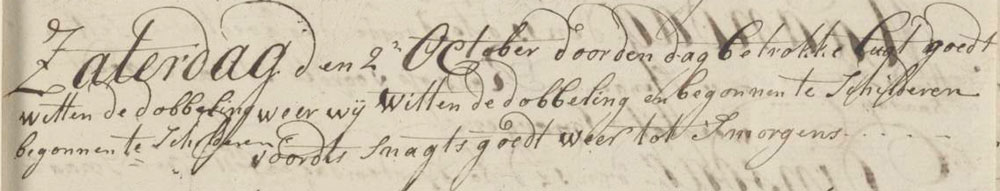 Zaterdag den 2n October door den dag betrokke lugt goedt
witten de dobbeling weer wij witten de dobbeling en begonnen te Schilderen
begonnen te Schilderen voorts Snagts goedt weer tot Smorgens